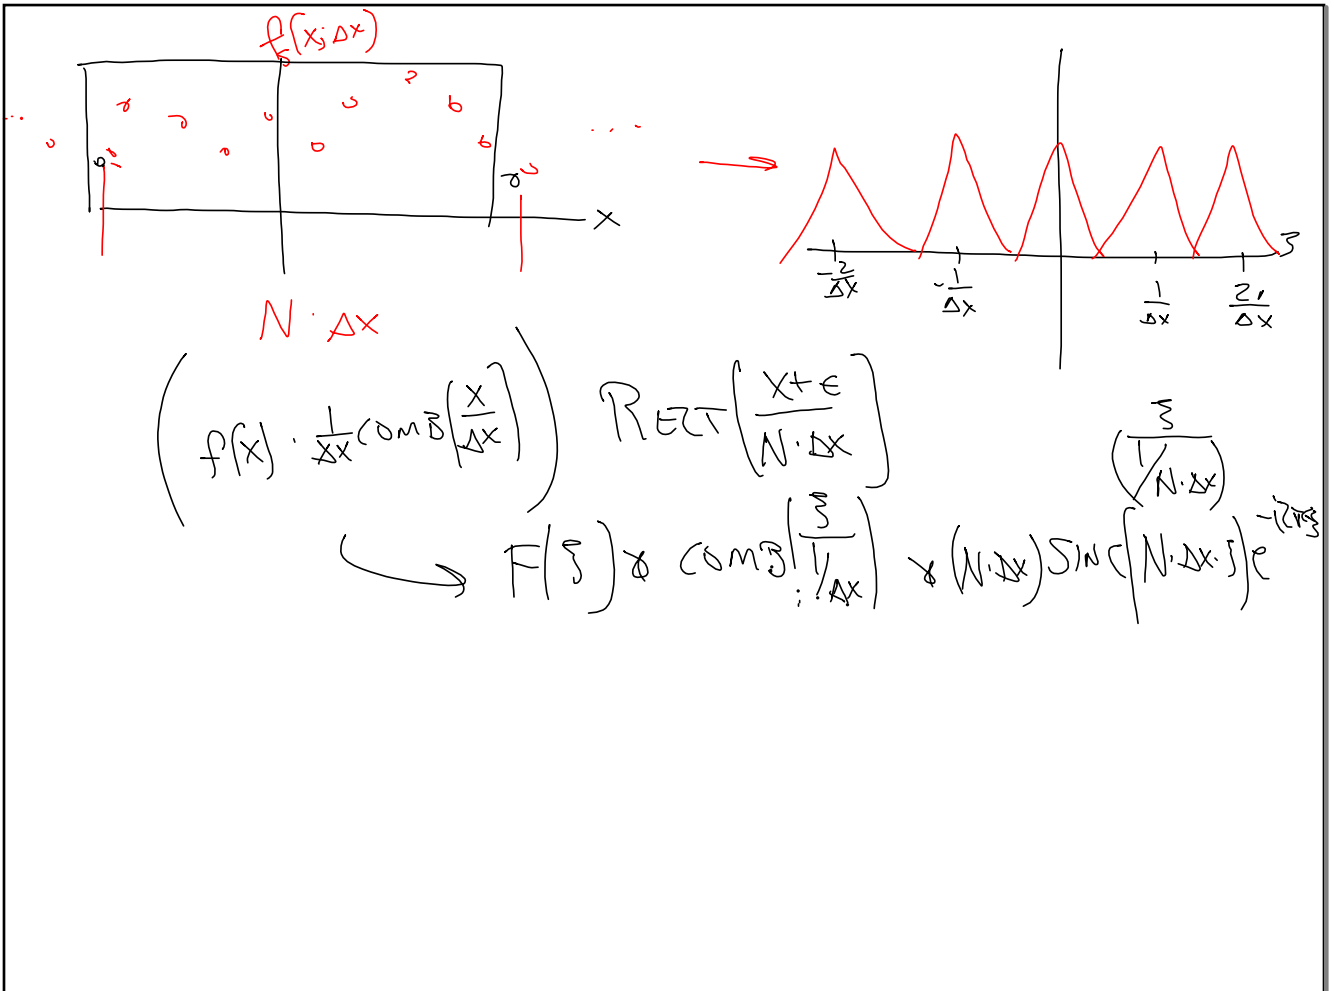 f(x; Δx)
... ...
x
ξ
-2/Δx -1/Δx 1/Δx 2/Δx
N · Δx
( f(x) · 1/Δx COMB(x/Δx) ) RECT[ x+ϵ / N·Δx ]
( ξ / 1/N·Δx )
F(ξ) * COMB( ξ / 1/Δx ) * (N·Δx) SINC(N·Δx·ξ) e